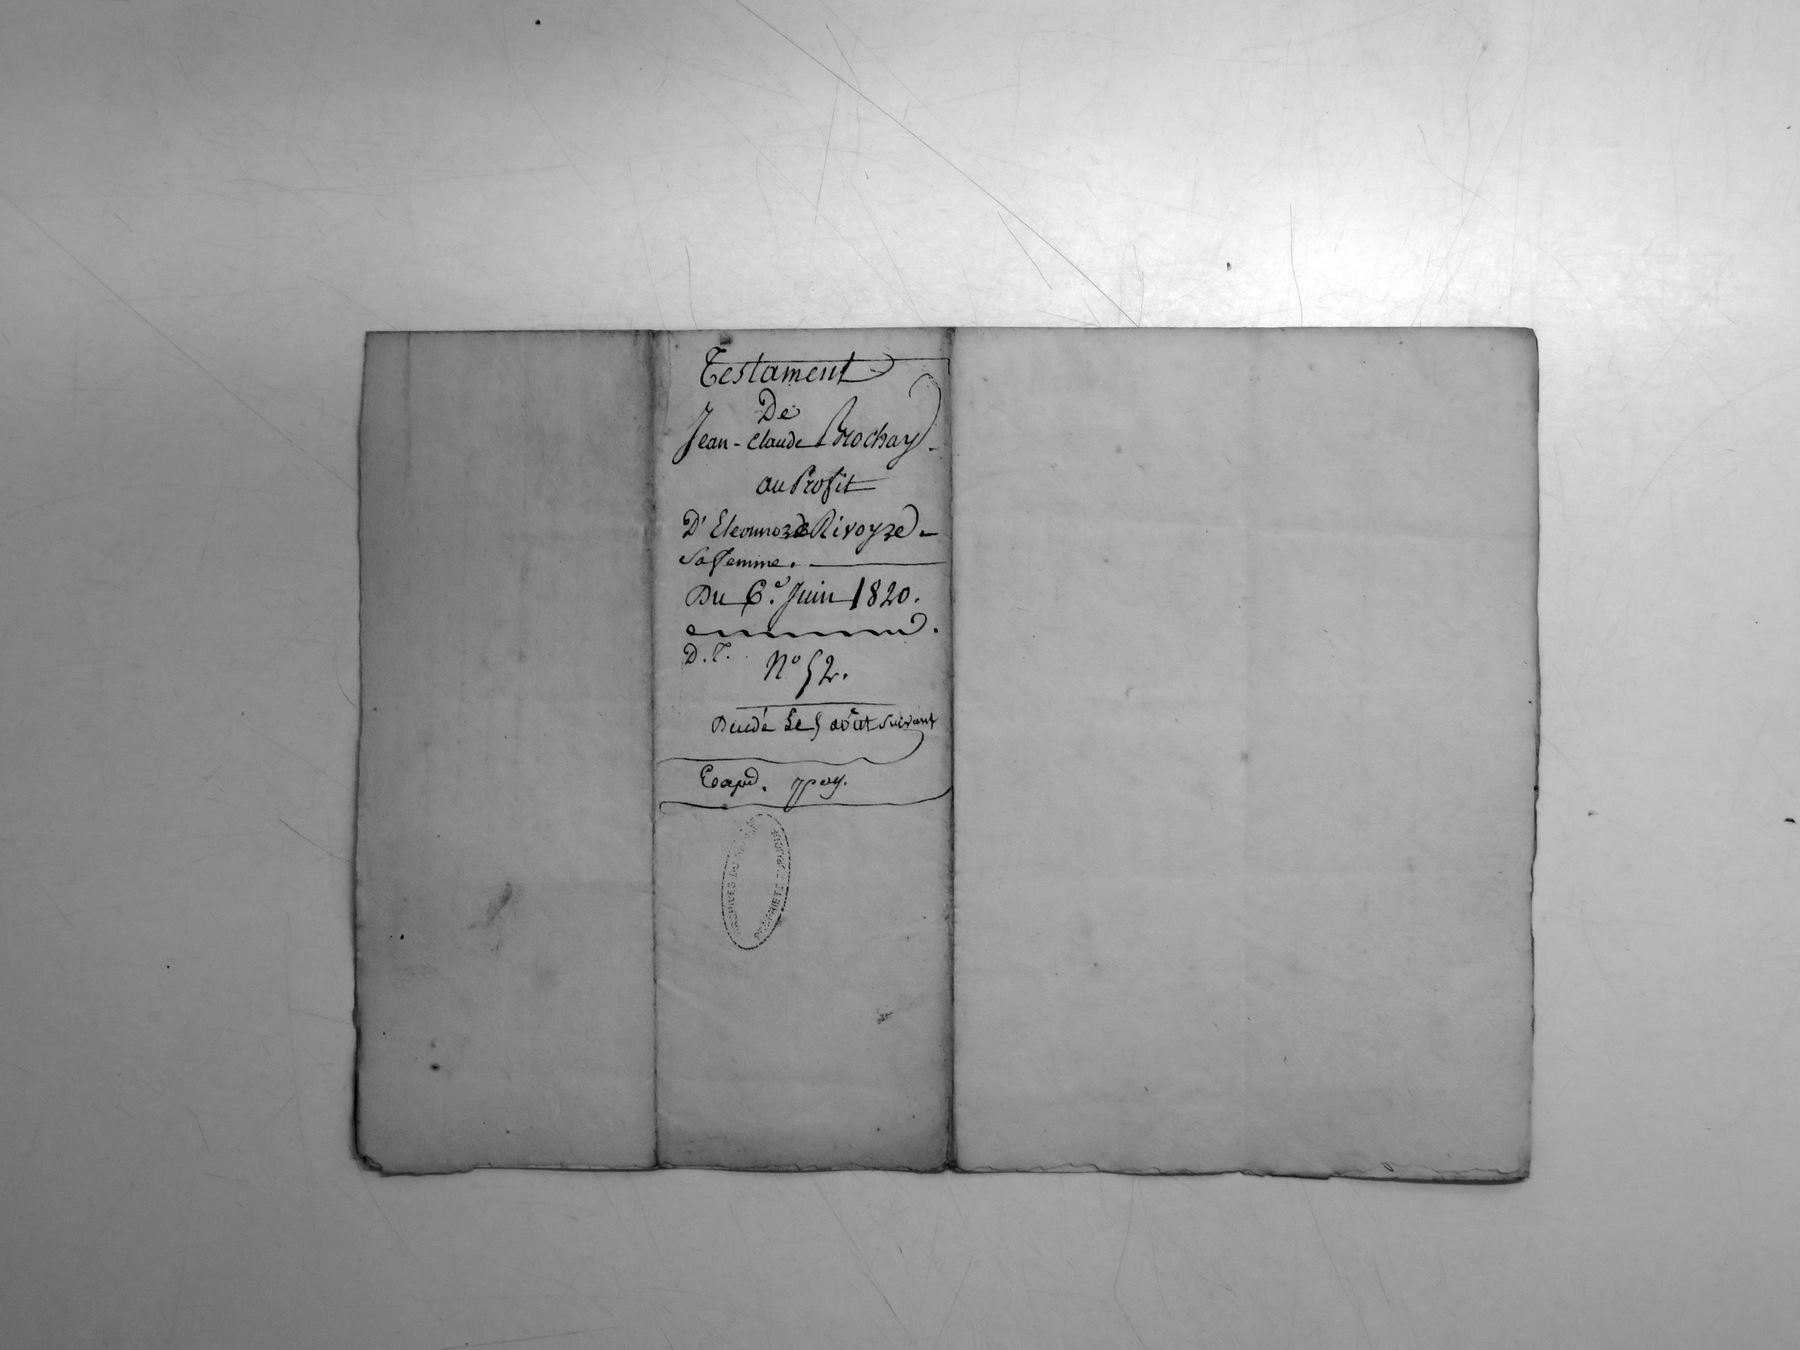 Testament
De
Jean-Claude Brochay
au Profit
D'Eleonnore Rivoyre
Sa femme.
Du 6.e Juin 1820.
D.T.
N.o 52.
Décédé Le 5 août suivant
Expd.
ARCHIVES DU
PROPRIÉTÉ PUBLIQUE